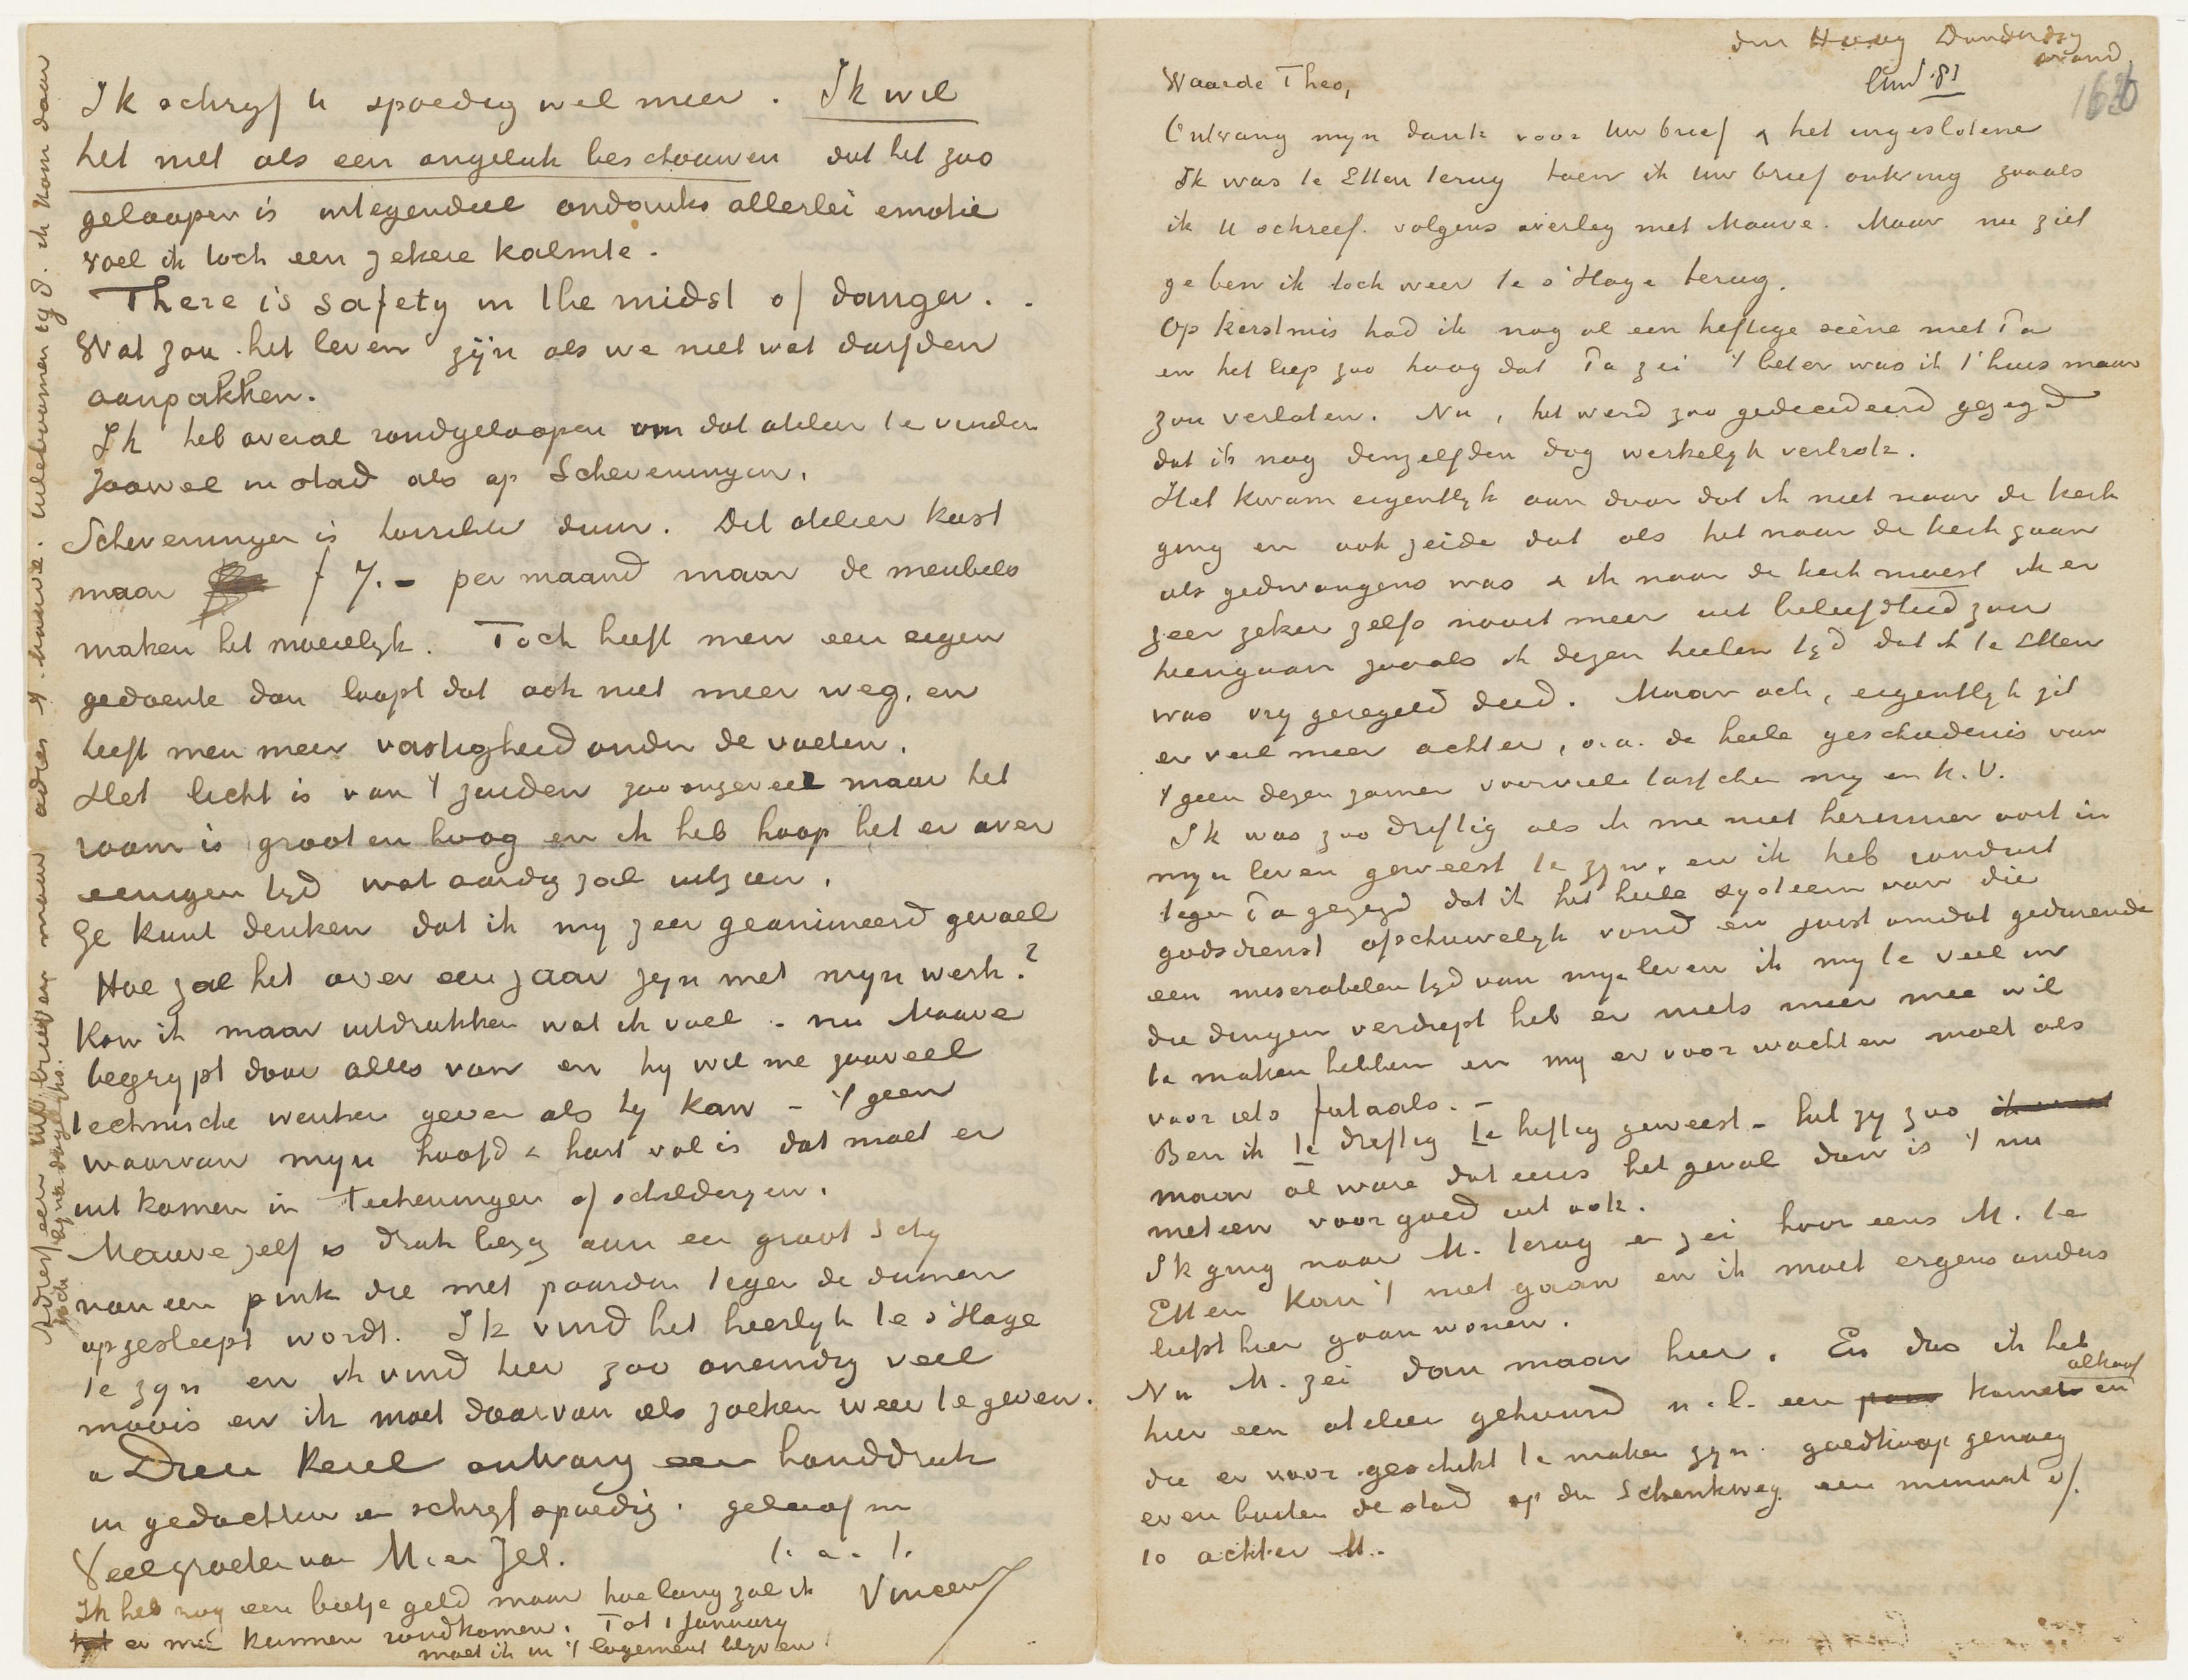 den Haag Donderdag
avond
Eind '81
166
Waarde Theo,
Ontvang myn dank voor Uw brief & het ingeslotene
Ik was te Etten terug toen ik Uw brief ontving zooals
ik U schreef. volgens overleg met Mauve. Maar nu ziet
ge ben ik toch weer te s'Hage terug.
Op kerstmis had ik nog al een heftige scène met Pa
en het liep zoo hoog dat Pa zei 't beter was ik 't huis maar
zou verlaten. Nu, het werd zoo gedecideerd gezegd
dat ik nog denzelfden dag werkelyk vertrok.
Het kwam eigentlyk aan door dat ik niet naar de kerk
ging en ook zeide dat als het naar de kerk gaan
als gedwongens was & ik naar de kerk moest ik er
zeer zeker zelfs nooit meer uit beleefdheid zou
heengaan zooals ik dezen heelen tyd dat ik te Etten
was vry geregeld deed. Maar och, eigentlyk zit
er veel meer achter, o.a. de heele geschiedenis van
't geen dezen zomer voorviel tusschen my en K.V.
Ik was zoo driftig als ik me niet herinner ooit in
myn leven geweest te zyn. en ik heb ronduit
tegen Pa gezegd dat ik het heele systeem van die
godsdienst afschuwelyk vond en juist omdat gedurende
een miserabelen tyd van myn leven ik my te veel in
die dingen verdiept heb er niets meer mee wil
te maken hebben en my er voor wachten moet als
voor iets fataals. –
Ben ik te driftig te heftig geweest – het zy zoo ik was
maar al ware dat eens het geval dan is 't nu
meteen voor goed uit ook.
Ik ging naar M. terug en zei hoor eens M. te
Etten kan 't niet gaan en ik moet ergens anders
liefst hier gaan wonen.
Nu M. zei dan maar hier. En dus ik heb
hier een atelier gehuurd n.l. een kamer en alkoof
die er voor geschikt te maken zyn. goedkoop genoeg
even buiten de stad op den Schenkweg. een minuut of
10 achter M..
Ik schryf U spoedig wel meer. Ik wil
het niet als een ongeluk beschouwen dat het zoo
geloopen is integendeel ondanks allerlei emotie
voel ik toch een zekere kalmte.
There is safety in the midst of danger. .
Wat zou het leven zyn als we niet wat durfden
aanpakken.
Ik heb overal rondgeloopen om dat atelier te vinden
zoowel in stad als op Scheveningen.
Scheveningen is terrible duur. Dit atelier kost
maar f 7.– per maand maar de meubels
maken het moeielyk. Toch heeft men een eigen
gedoente dan loopt dat ook niet meer weg. en
heeft men meer vastigheid onder de voeten.
Het licht is van 't zuiden zoo ongeveer maar het
raam is groot en hoog en ik heb hoop het er over
eenigen tyd wat aardig zal uitzien.
Ge kunt denken dat ik my zeer geanimeerd gevoel
Hoe zal het over een jaar zyn met myn werk?
Kon ik maar uitdrukken wat ik voel – nu Mauve
begrypt daar alles van en hy wil me zooveel
technische wenken geven als hy kan – 't geen
waarvan myn hoofd & hart vol is dat moet er
uit komen in Teekeningen of schilderyen.
Mauve zelf is druk bezig aan een groot schy
van een pink die met paarden tegen de duinen
opgesleept wordt. Ik vind het heerlyk te s'Hage
te zyn en ik vind hier zoo oneindig veel
moois en ik moet daarvan iets zoeken weer te geven.
a Dieu kerel ontvang een handdruk
in gedachten en schryf spoedig. geloof m
Veel groeten van M. en Jet. t. a. t.
Vincent
Ik heb nog een beetje geld maar hoe lang zal ik
er mee kunnen rondkomen. Tot 1 January
moet ik in 't logement blyven
Adresseer uw brieven maar adres A. Mauve. Uileboomen 198. ik kom daar
toch byna dagelyks.